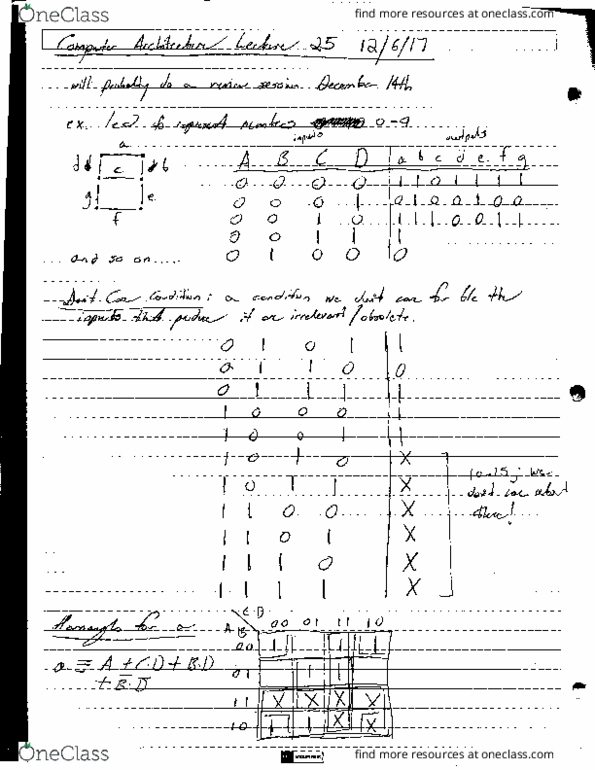 OneClass find more resources at oneclass.com
Computer Architecture Lecture 25 12/6/17
will probably do a review session December 14th
ex. led to represent numbers 0-9
inputs outputs
a A B C D a b c d e f g
d c b 0 0 0 0 1 1 0 1 1 1 1
0 0 0 1 0 1 0 0 1 0 0
g e 0 0 1 0 1 1 1 0 0 1 1
f 0 0 1 1 1
and so on..... 0 1 0 0 0
Don't Care Condition: a condition we don't care for b/c the
inputs that produce it are irrelevant/obsolete.
0 1 0 1 1
0 1 1 0 0
0 1 1 1 1
1 0 0 0 1
1 0 0 1 1
1 0 1 0 X
1 0 1 1 X 10-15; we
don't care about
1 1 0 0 X these!
1 1 0 1 X
1 1 1 0 X
1 1 1 1 X
Karnaugh for a: CD
AB 00 01 11 10
00 1 1 1
a ≡ A + C·D + B·D
+ B̅·D̅
01 1 1
11 X X X X
10 1 1 X X
OneClass find more resources at oneclass.com